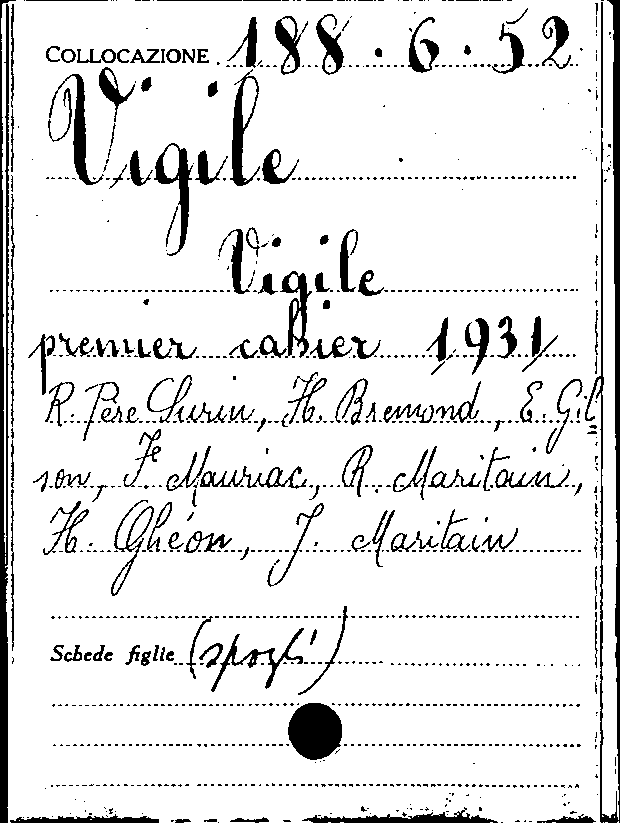 COLLOCAZIONE 188.6.52
Vigile
Vigile
premier cahier 1931
R. Père Surin, H. Bremond, E. Gil=
son, Fe Mauriac, R. Maritain,
H. Ghéon, J. Maritain
Schede figlie (spogli)